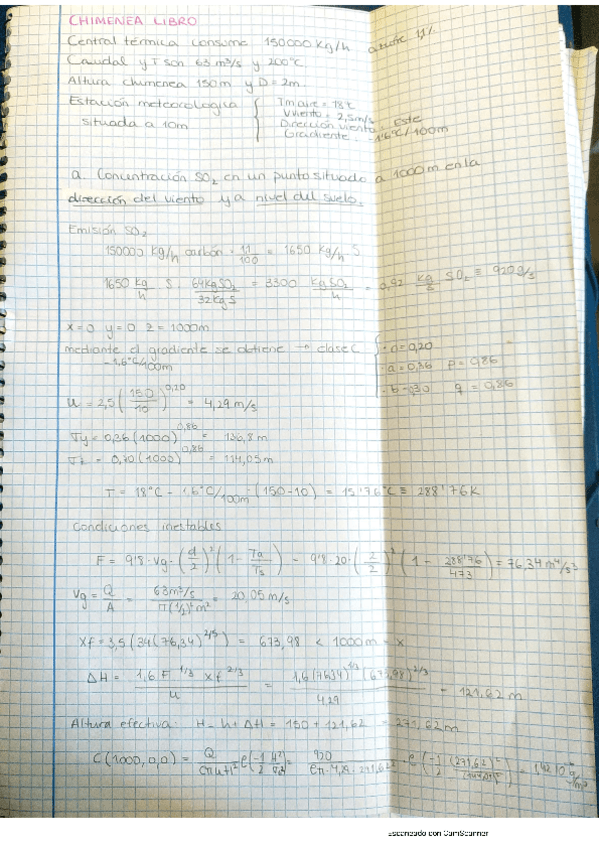 CHIMENEA LIBRO
Central térmica consume 150000 kg/h azufre 11%
Caudal y T son 63 m³/s y 200°C.
Altura chimenea 150 m y D = 2m.
Estación meteorológica situada a 10m
T m aire = 18°C
V viento = 2,5 m/s
Dirección viento Este
Gradiente -1,6°C/100m
a. Concentración SO₂ en un punto situado a 1000 m en la
dirección del viento y a nivel del suelo.
Emisión SO₂
150000 kg/h carbón · 11/100 = 1650 kg/h S
1650 kg/h S · 64 kg SO₂/32 kg S = 3300 kg SO₂/h = 0,92 kg/s SO₂ ≡ 920 g/s
x = 0 y = 0 z = 1000m
mediante el gradiente se obtiene → clase C
-1,6°C/100m
· n = 0,20
· a = 0,36 p = 0,86
· b = 0,30 q = 0,86
u = 2,5 (150/10)^0,20 = 4,29 m/s
σy = 0,36 (1000)^0,86 = 136,8 m
σz = 0,30 (1000)^0,86 = 114,05 m
T = 18°C - 1,6°C/100m · (150-10) = 15'76°C ≡ 288'76 K
Condiciones inestables
F = 9'8 · Vg · (d/2)² (1 - Ta/Ts) = 9'8 · 20 · (2/2)² (1 - 288'76/473) = 76,34 m⁴/s³
Vg = Q/A = 63 m³/s / π(½)² m² = 20,05 m/s
Xf = 3,5 (34 (76,34)^2/5) = 673,98 < 1000m = x
ΔH = 1,6 F^1/3 Xf^2/3 / u = 1,6 (76,34)^1/3 (673,98)^2/3 / 4,29 = 121,62 m
Altura efectiva: H = h + ΔH = 150 + 121,62 = 271,62 m
C (1000,0,0) =